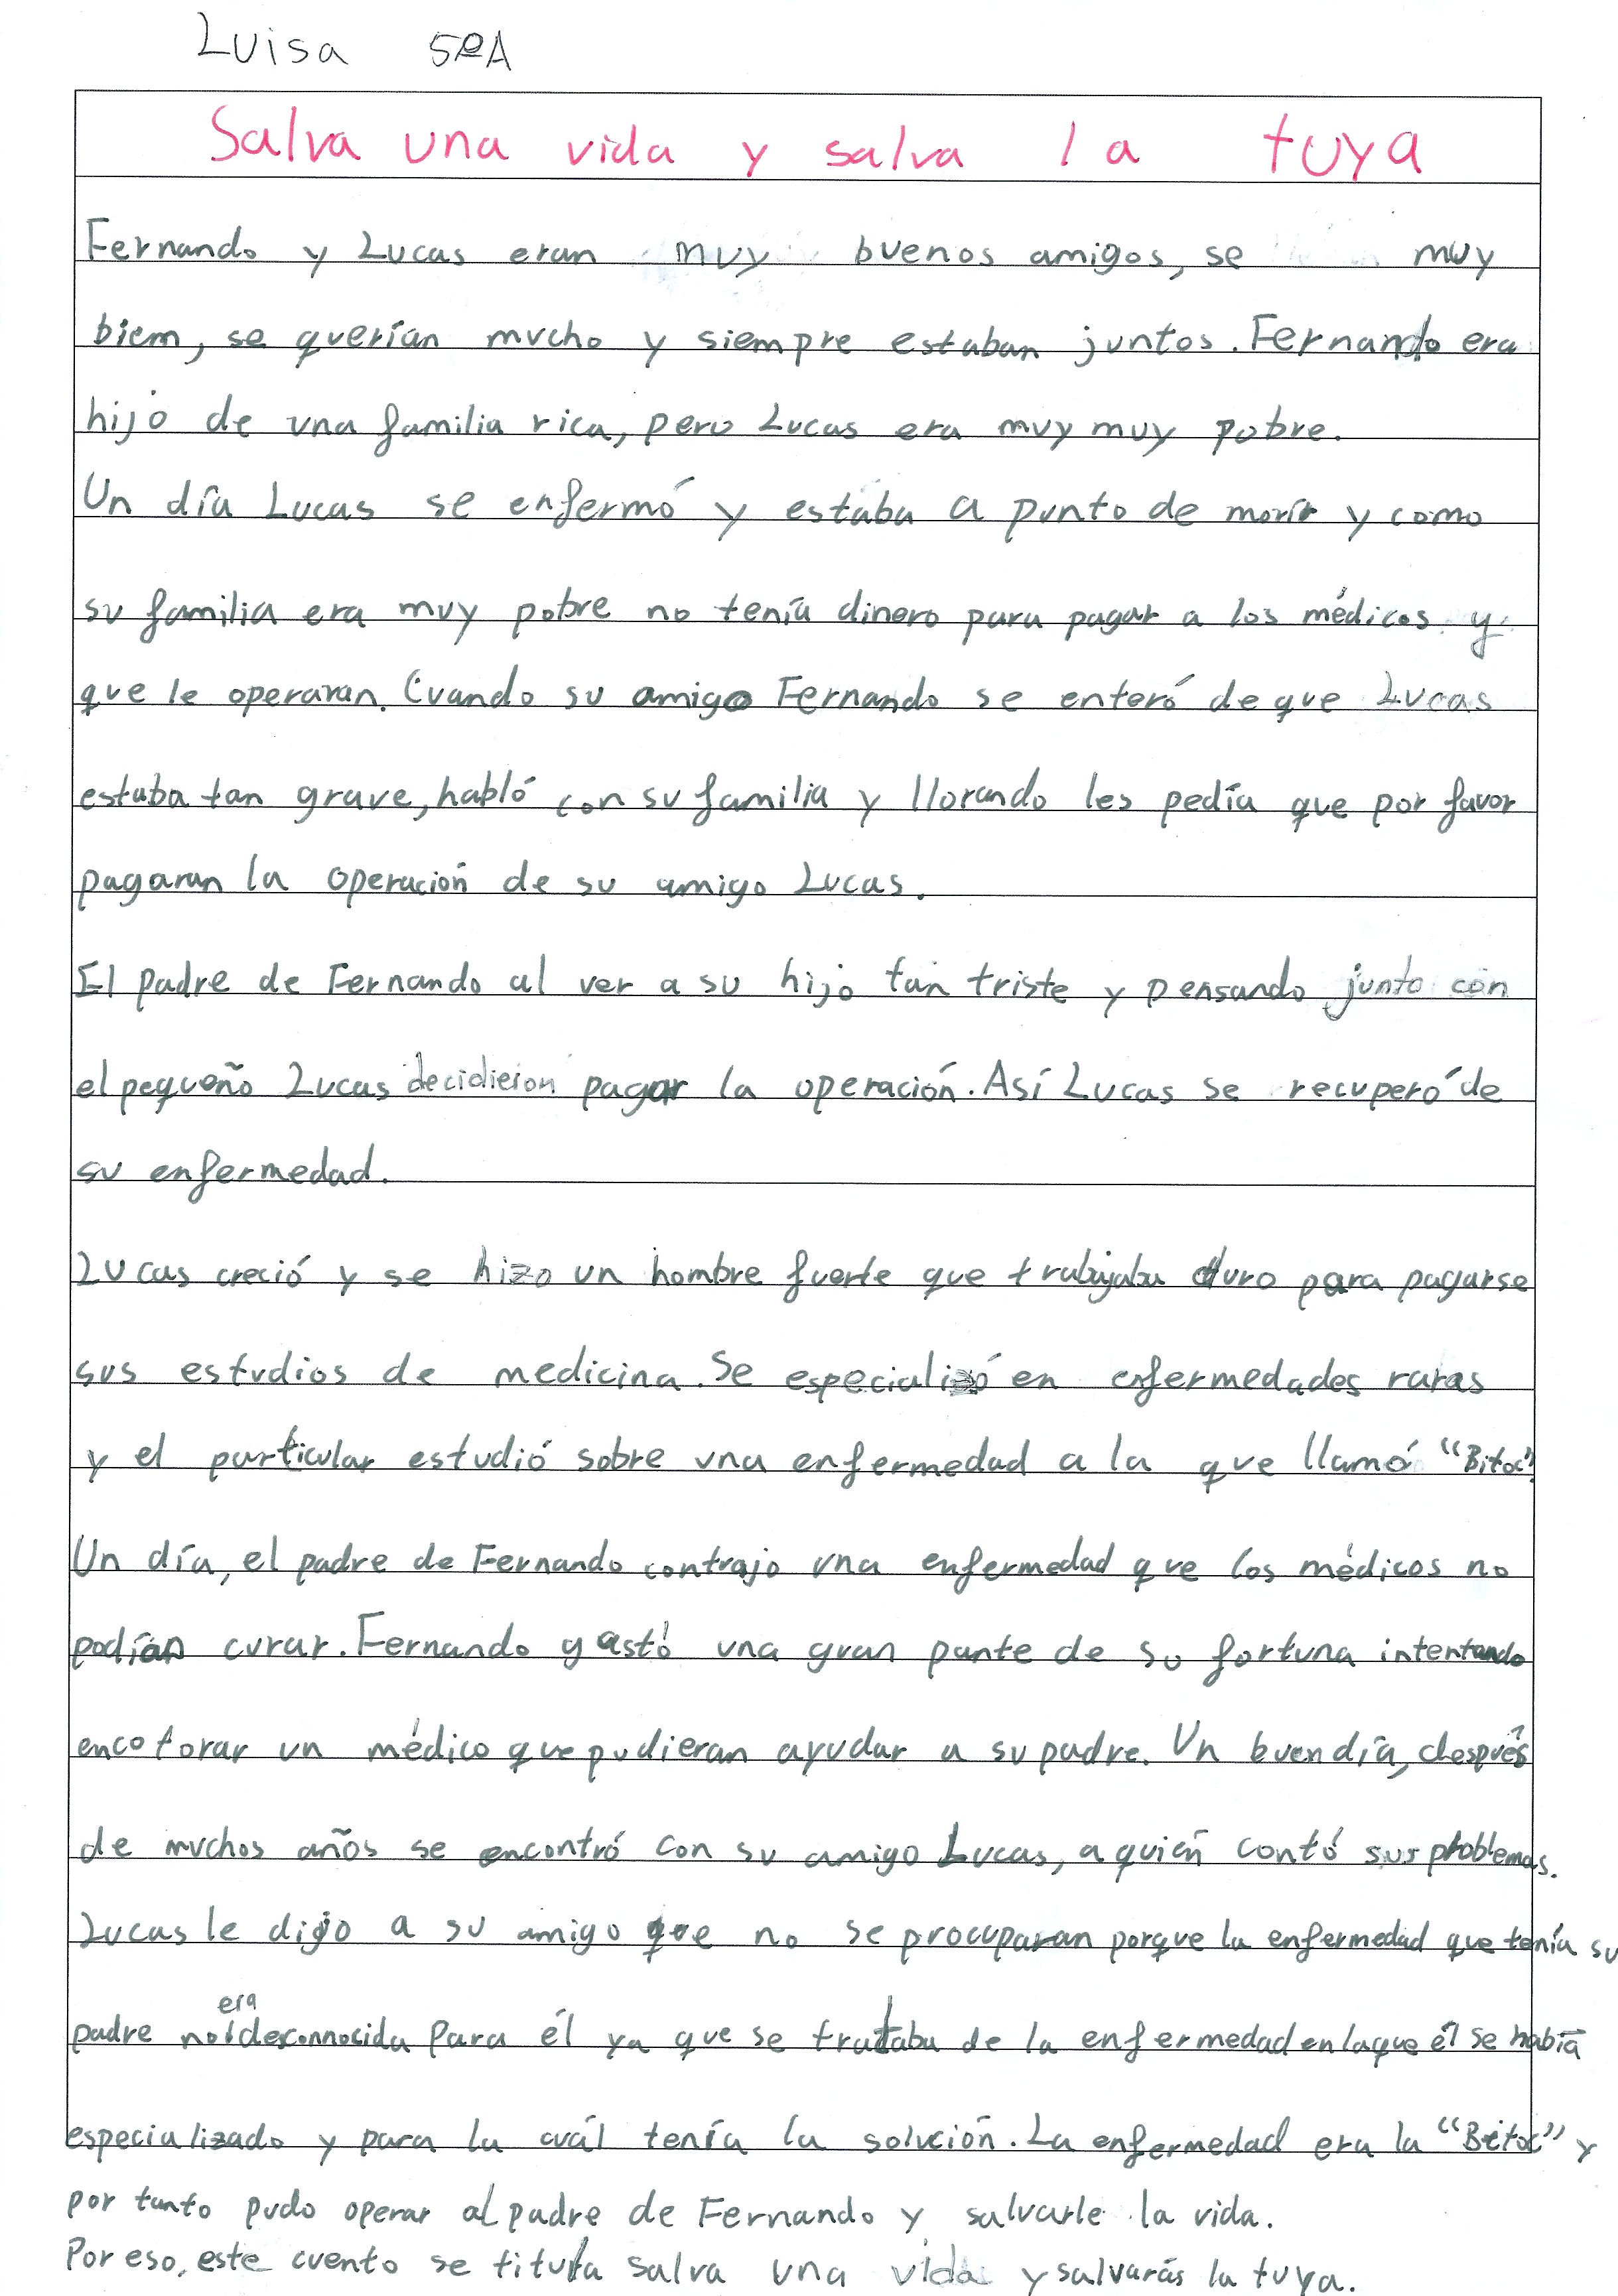 Luisa 5ºA
Salva una vida y salva la tuya
Fernando y Lucas eran muy buenos amigos, se muy
biem, se querían mucho y siempre estaban juntos. Fernando era
hijo de una familia rica, pero Lucas era muy muy pobre.
Un día Lucas se enfermó y estaba a punto de morir y como
su familia era muy pobre no tenía dinero para pagar a los médicos y
que le operaran. Cuando su amigo Fernando se enteró de que Lucas
estaba tan grave, habló con su familia y llorando les pedía que por favor
pagaran la operación de su amigo Lucas.
El padre de Fernando al ver a su hijo tan triste y pensando junto con
el pequeño Lucas decidieron pagar la operación. Así Lucas se recuperó de
su enfermedad.
Lucas creció y se hizo un hombre fuerte que trabajaba duro para pagarse
sus estudios de medicina. Se especializó en enfermedades raras
y el particular estudió sobre una enfermedad a la que llamó "Bitoc".
Un día, el padre de Fernando contrajo una enfermedad que los médicos no
podían curar. Fernando gastó una gran parte de su fortuna intentando
encotorar un médico que pudieran ayudar a su padre. Un buen día, después
de muchos años se encontró con su amigo Lucas, a quién contó sus problemas.
Lucas le dijo a su amigo que no se procuparan porque la enfermedad que tenía su
padre no era desconnocida para él ya que se trataba de la enfermedad en la que él se había
especializado y para la cuál tenía la solución. La enfermedad era la "Bitoc" y
por tanto pudo operar al padre de Fernando y salvarle la vida.
Por eso, este cuento se titula salva una vida y salvarás la tuya.